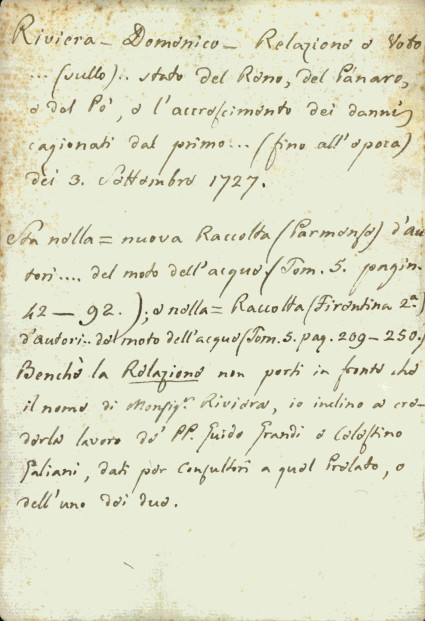 Riviera - Domenico - Relazione e Voto
... (sullo).. stato del Reno, del Panaro,
e del Pò, e l'accrescimento dei danni
cagionati dal primo... (fino all'epoca)
dei 3. Settembre 1727.
Sta nella = nuova Raccolta (Parmense) d'au
tori.... del moto dell'acque (Tom. 5. pagin.
42 - 92.); e nella = Raccolta (Firentina 2.ª)
d'autori.. del moto dell'acque (Tom. 5. pag. 209 - 250.)
Benchè la Relazione non porti in fronte che
il nome di Monsig.r Riviera, io inclino a cre-
derla lavoro de' PP. Guido Grandi e Celestino
Galiani, dati per Consultori a quel Prelato, o
dell'uno dei due.